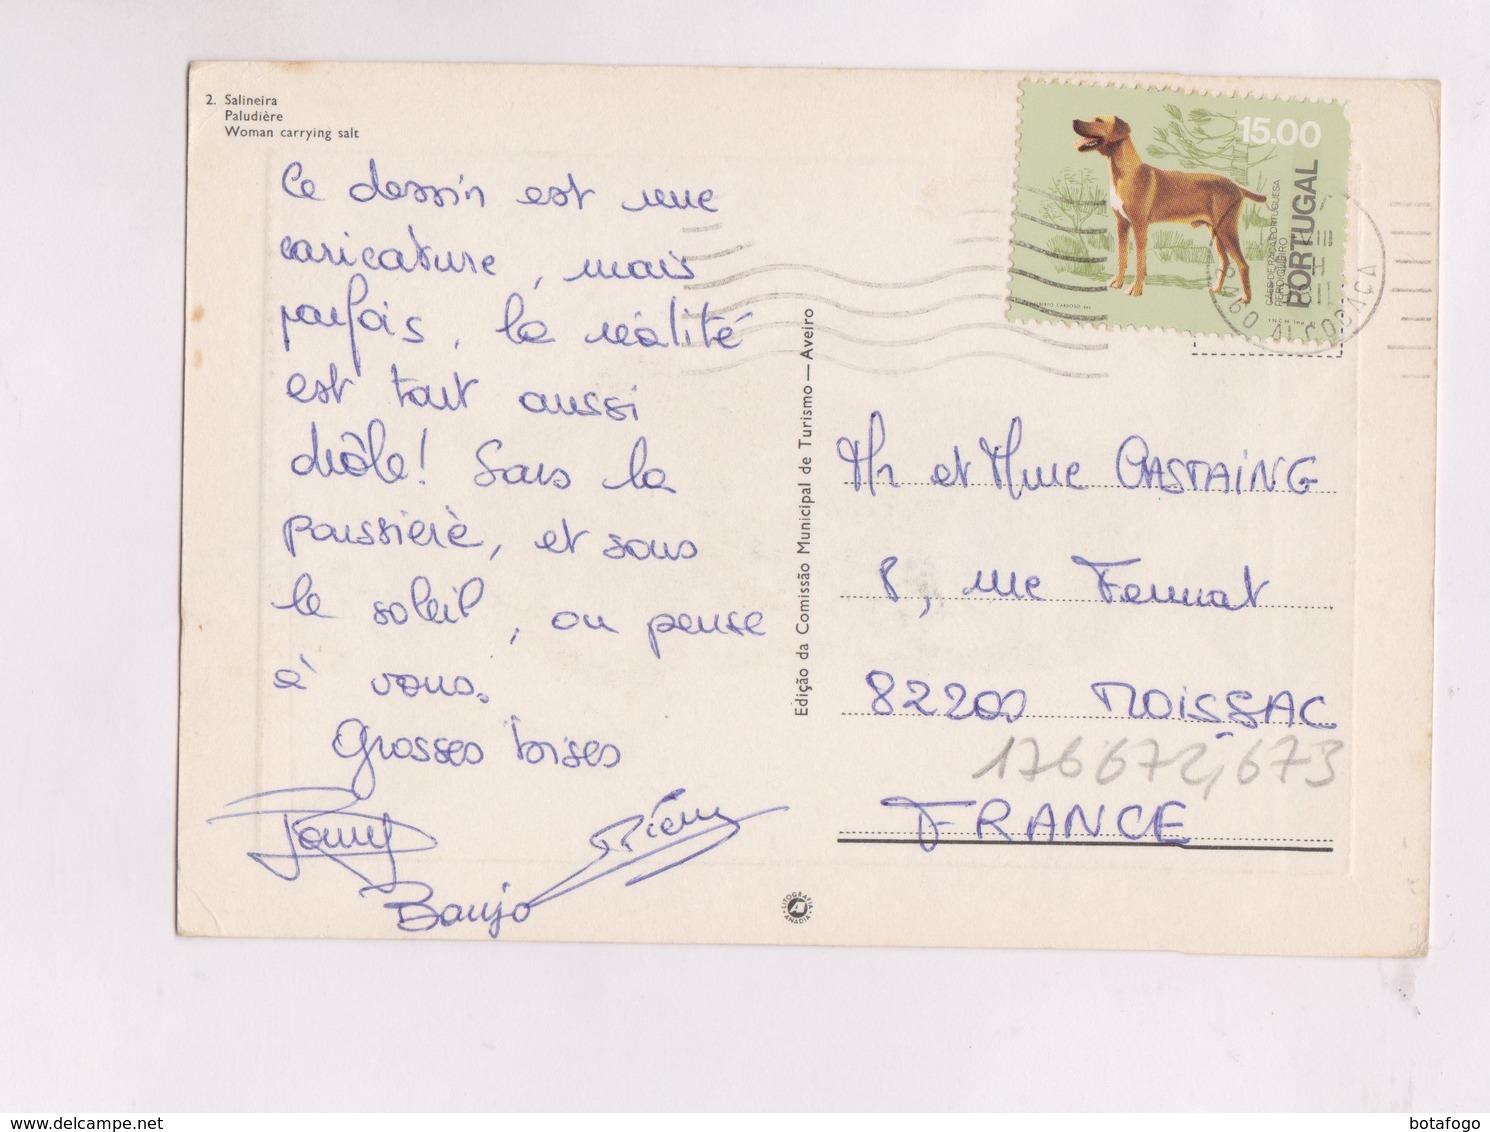 2. Salineira
Paludière
Woman carrying salt
Ce dessin est une
caricature, mais
parfois, la réalité
est tout aussi
drôle! Sous la
poussière, et sous
le soleil, on pense
à vous.
Grosses bises
Pierre
Banjo
Edição da Comissão Municipal de Turismo — Aveiro
LITOGRAFIA
ANADIA
15.00
PORTUGAL
CÃES DE RAÇA PORTUGUESA
PERDIGUEIRO
2460 ALCOBAÇA
Mr et Mme CASTAING
8, rue Fermat
82200 MOISSAC
176672,673
FRANCE
botafogo